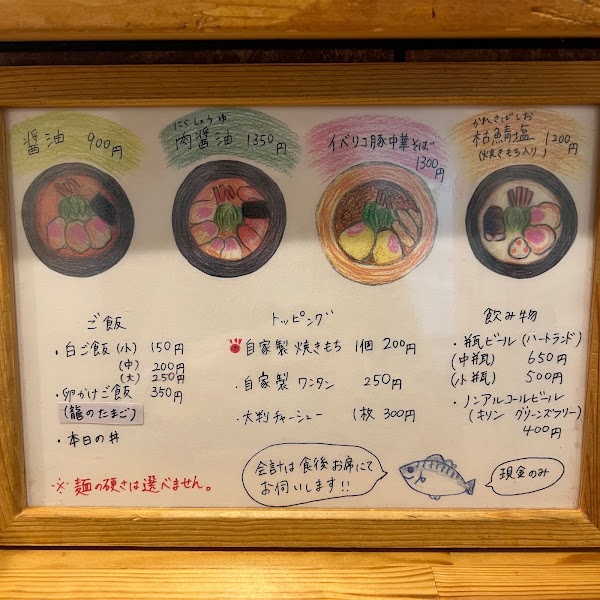 醤油 900円
にくしょうゆ
肉醤油 1350円
イベリコ豚中華そば
1300円
かれさばしお
枯鯖塩 1200円
(焼きもち入り)
ご飯
・白ご飯(小) 150円
(中) 200円
(大) 250円
・卵かけご飯 350円
(龍のたまご)
・本日の丼
トッピング
自家製焼きもち 1個 200円
・自家製ワンタン 250円
・大判チャーシュー 1枚 300円
飲み物
・瓶ビール(ハートランド)
(中瓶) 650円
(小瓶) 500円
・ノンアルコールビール
(キリン グリーンズフリー)
400円
※麺の硬さは選べません。
会計は食後お席にて
お伺いします!!
現金のみ